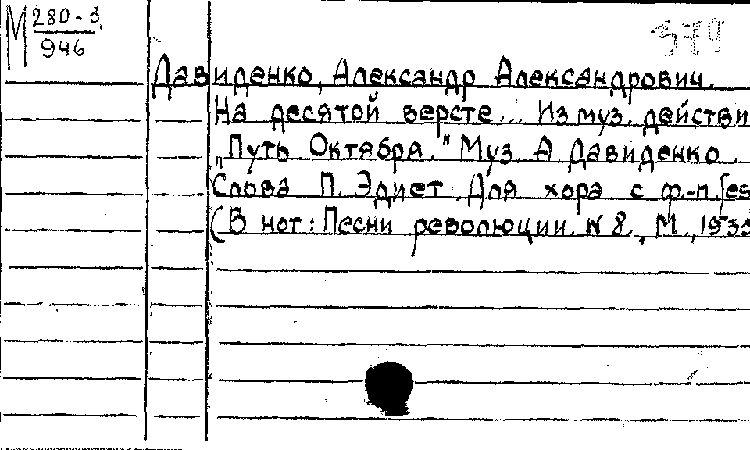 М 280-3
946
379
Давиденко, Александр Александрович.
На десятой версте... Из муз. действи
"Путь Октября." Муз. А Давиденко.
Слова П. Эдиет. Для хора с ф.-п. [es
(В нот: Песни революции. N 8., М., 1933